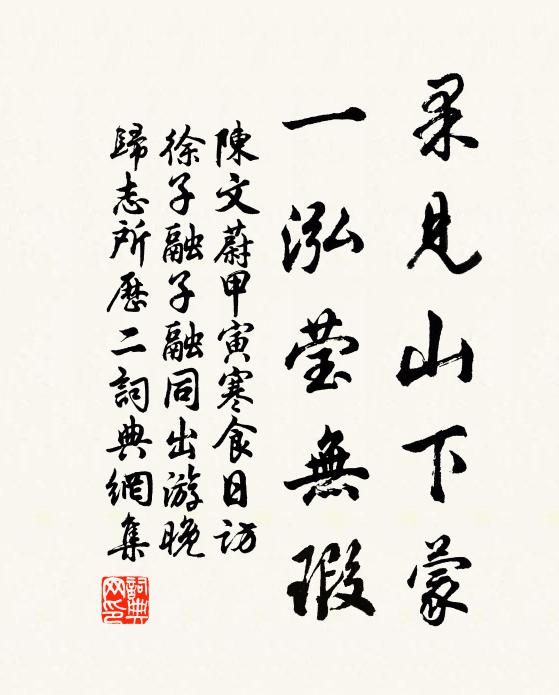 果見山下蒙
一泓瑩無瑕
陳文蔚甲寅寒食日訪
徐子融子融同出游晚
歸志所歷二詞典網集
詞典
网印